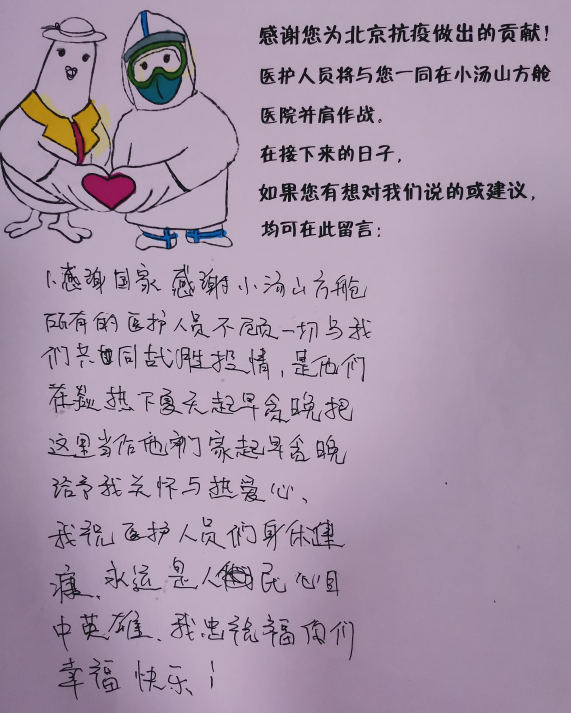 感谢您为北京抗疫做出的贡献!
医护人员将与您一同在小汤山方舱
医院并肩作战。
在接下来的日子,
如果您有想对我们说的或建议,
均可在此留言:
1、感谢国家 感谢小汤山方舱
所有的医护人员不顾一切与我
们共同战胜投情,是他们
在炎热下夏天起早贪晚把
这里当作他们家起早贪晚
给予我关怀与热爱心、
我祝医护人员们身体健
康、永远是人民心目
中英雄、我忠祝福你们
幸福 快乐!